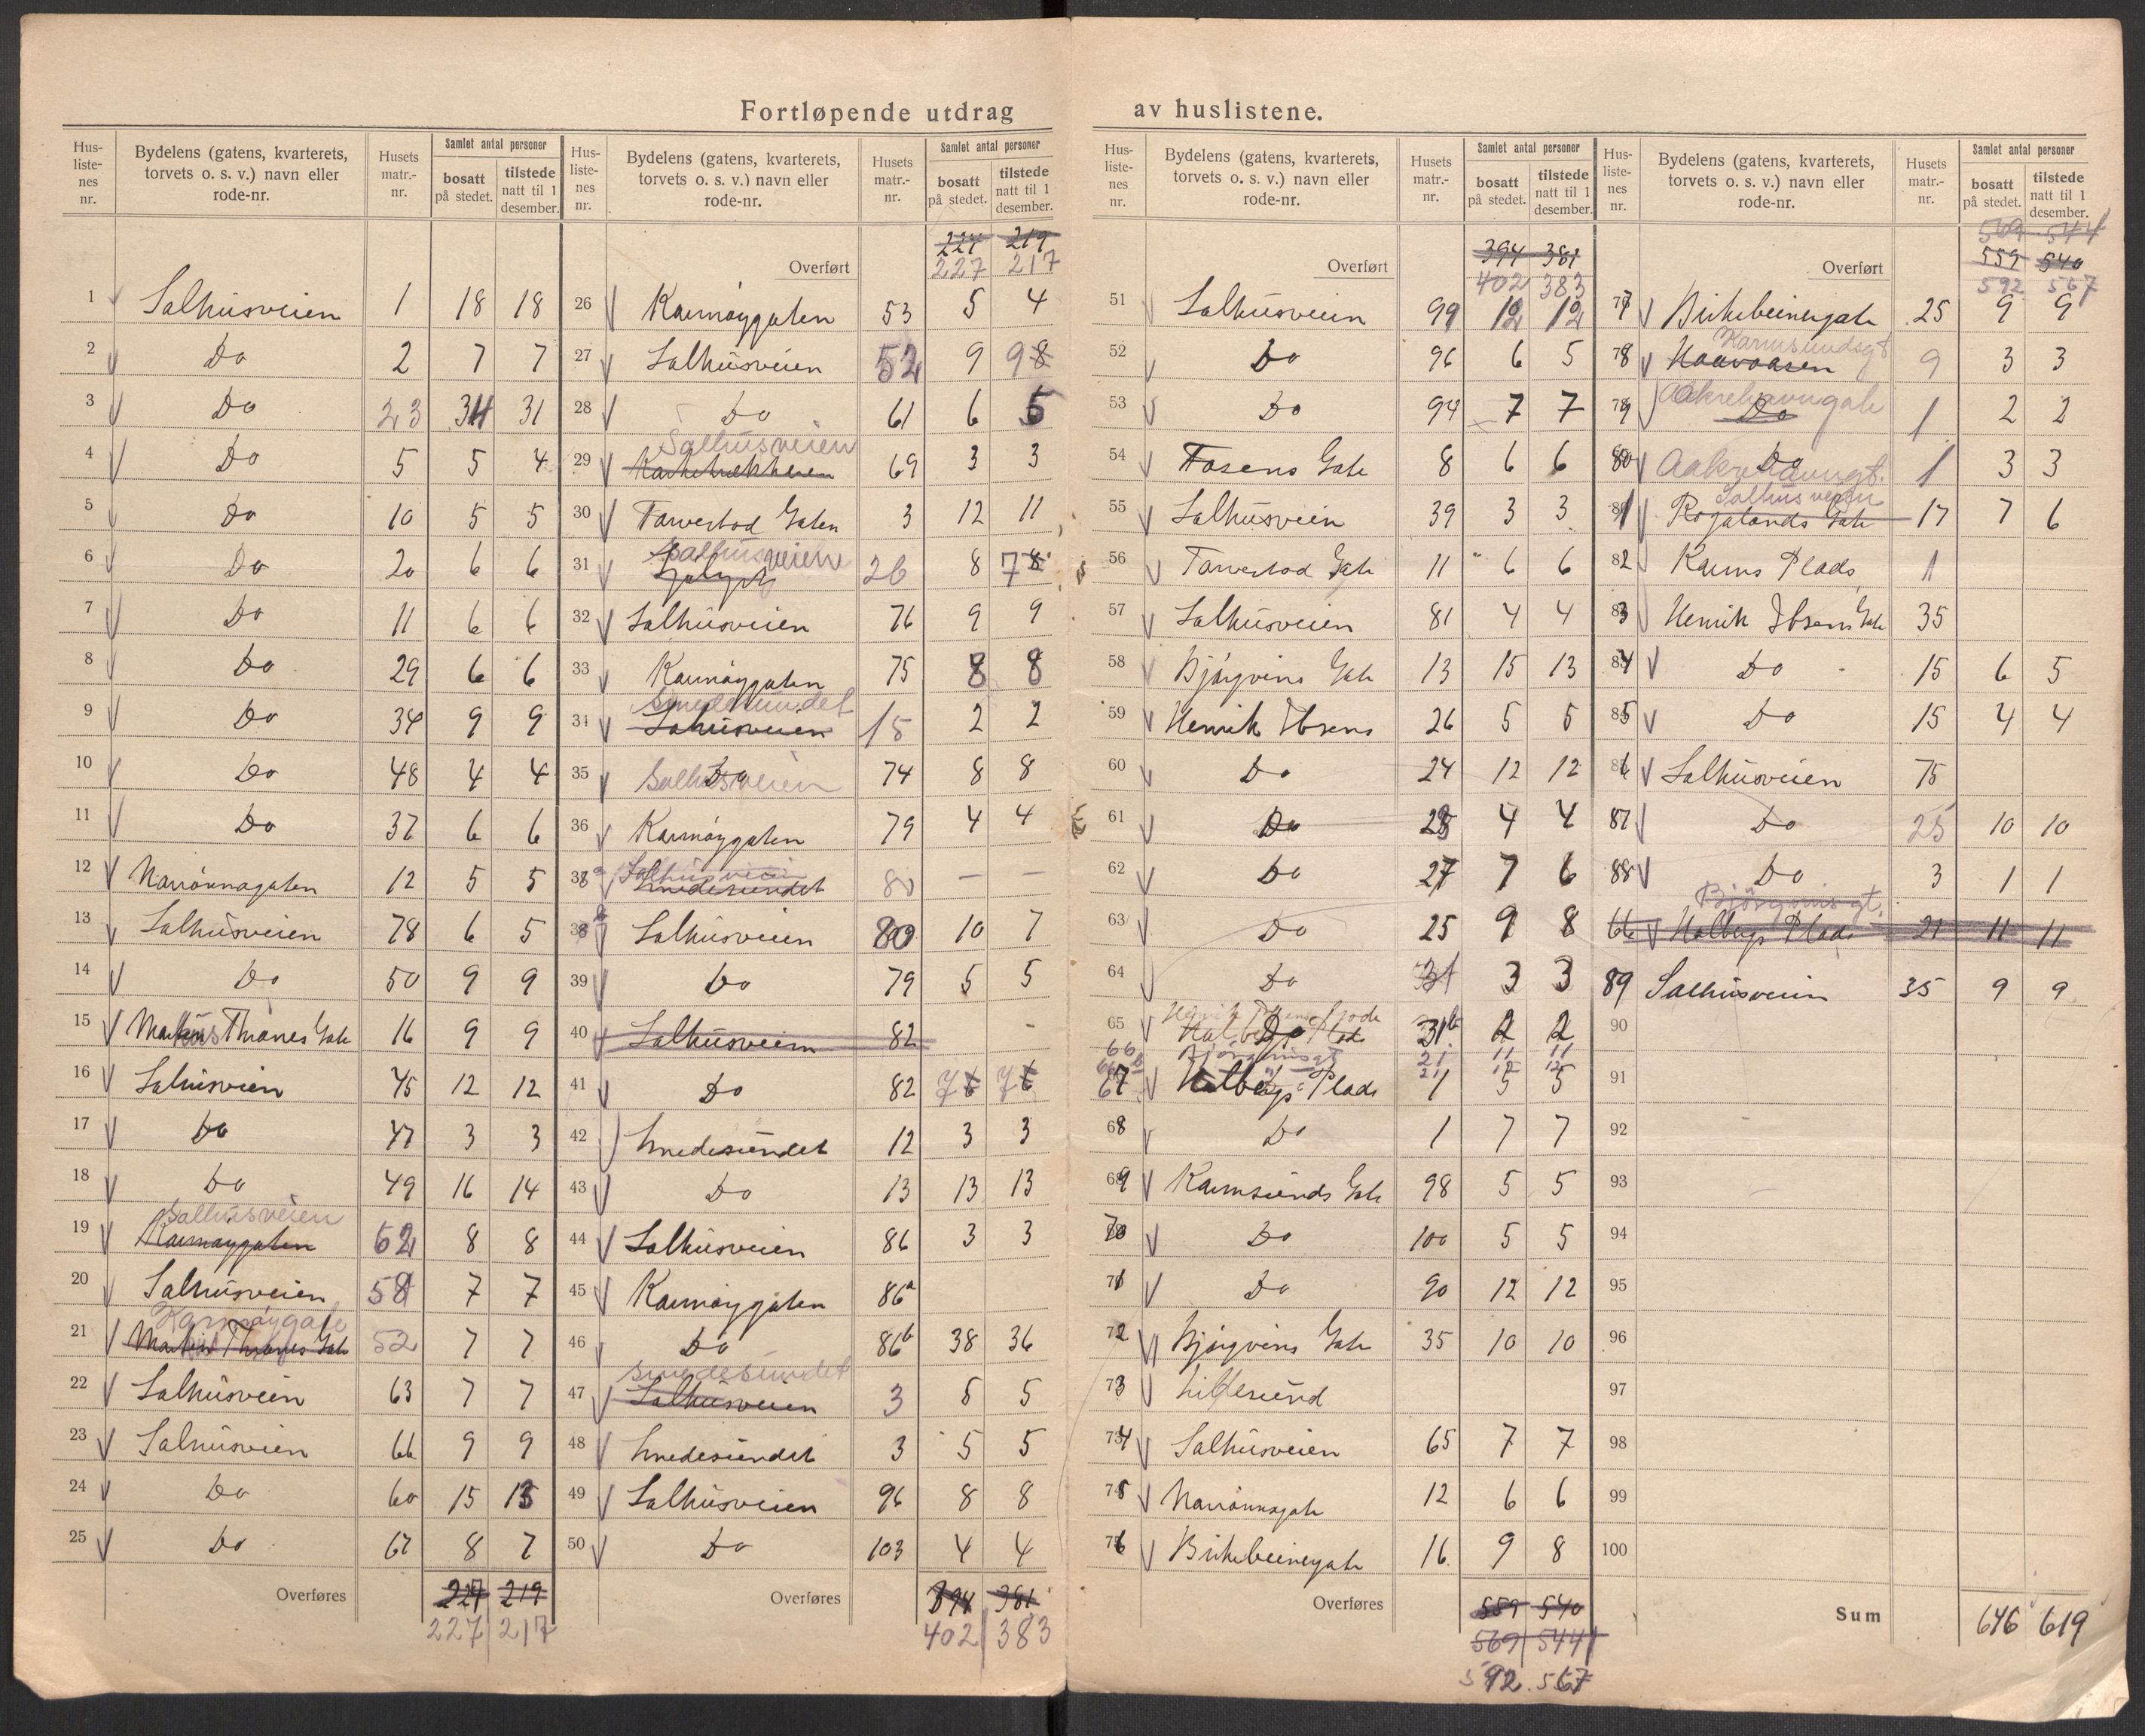 Fortløpende utdrag av huslistene.
Hus-liste-nes nr. | Bydelens (gatens, kvarterets, torvets o. s. v.) navn eller rode-nr. | Husets matr.-nr. | Samlet antal personer | bosatt på stedet. | tilstede natt til 1 desember.
1 Salhusveien 1 18 18
2 Do 2 7 7
3 Do 23 31 31
4 Do 5 5 4
5 Do 10 5 5
6 Do 20 6 6
7 Do 11 6 6
8 Do 29 6 6
9 Do 34 9 9
10 Do 48 4 4
11 Do 37 6 6
12 Norrönnagaten 12 5 5
13 Salhusveien 78 6 5
14 Do 50 9 9
15 Markus Thranes Gate 16 9 9
16 Salhusveien 45 12 12
17 Do 47 3 3
18 Do 49 16 14
19 Karmöygaten Salhusveien 62 8 8
20 Salhusveien 58 7 7
21 Markus Thranes Gate Karmöygate 52 7 7
22 Salhusveien 63 7 7
23 Salhusveien 66 9 9
24 Do 60 15 15
25 Do 67 8 7
Overføres 227 219
227 217
Hus-liste-nes nr. | Bydelens (gatens, kvarterets, torvets o. s. v.) navn eller rode-nr. | Husets matr.-nr. | Samlet antal personer | bosatt på stedet. | tilstede natt til 1 desember.
Overført 227 219
227 217
26 Karmöygaten 53 5 4
27 Salhusveien 52 9 9 8
28 Do 61 6 5
29 Salhusveien 69 3 3
30 Tarvestad Gaten 3 12 11
31 Salhusveien 26 8 7 8
32 Salhusveien 76 9 9
33 Karmöygaten 75 8 8
34 Salhusveien Smedesundet 15 2 2
35 Do Salhusveien 74 8 8
36 Karmöygaten 79 4 4
38a Smedesundet Salhusveien 80 — —
38b Salhusveien 80 10 7
39 Do 79 5 5
40 Salhusveien 82 -
41 Do 82 7 6 7 6
42 Smedesundet 12 3 3
43 Do 13 13 13
44 Salhusveien 86 3 3
45 Karmöygaten 86a
46 Do 86b 38 36
47 Salhusveien Smedesundet 3 5 5
48 Smedesundet 3 5 5
49 Salhusveien 96 8 8
50 Do 103 4 4
Overføres 394 381
402 383
Hus-liste-nes nr. | Bydelens (gatens, kvarterets, torvets o. s. v.) navn eller rode-nr. | Husets matr.-nr. | Samlet antal personer | bosatt på stedet. | tilstede natt til 1 desember.
Overført 394 381
402 383
51 Salhusveien 99 12 12
52 Do 96 6 5
53 Do 94 7 7
54 Fosens Gate 8 6 6
55 Salhusveien 39 3 3
56 Tarvestad Gate 11 6 6
57 Salhusveien 81 4 4
58 Björgvins Gate 13 15 13
59 Henrik Ibsens 26 5 5
60 Do 24 12 12
61 Do 28 4 4
62 Do 27 7 6
63 Do 25 9 8
64 Do 31 3 3
65 Do 31b 2 2
66 Björgvinsgt 21 11 11
67 Holbergs Plads 1 5 5
68 Do 1 7 7
69 Karmsunds Gate 98 5 5
70 Do 100 5 5
71 Do 90 12 12
72 Björgvins Gate 35 10 10
73 Lillesund
74 Salhusveien 65 7 7
75 Norrönnagate 12 6 6
76 Birkebeinergate 16 9 8
Overføres 559 540
569 544
592 567
Hus-liste-nes nr. | Bydelens (gatens, kvarterets, torvets o. s. v.) navn eller rode-nr. | Husets matr.-nr. | Samlet antal personer | bosatt på stedet. | tilstede natt til 1 desember.
569 544
Overført 559 540
592 567
77 Birkebeinergate 25 9 9
78 Haavaasen Karmsundsgt 9 3 3
79 Do Aakrehavngate 1 2 2
80 Do Aakrehavngt. 1 3 3
81 Rogalands Gate Salhusveien 17 7 6
82 Karms Plads 1
83 Henrik Ibsens Gate 35
84 Do 15 6 5
85 Do 15 4 4
86 Salhusveien 75
87 Do 25 10 10
88 Do 3 1 1
66 Holbergs Plads Björgvinsgt. 21 11 11
89 Salhusveien 35 9 9
90
91
92
93
94
95
96
97
98
99
100
Sum 646 619